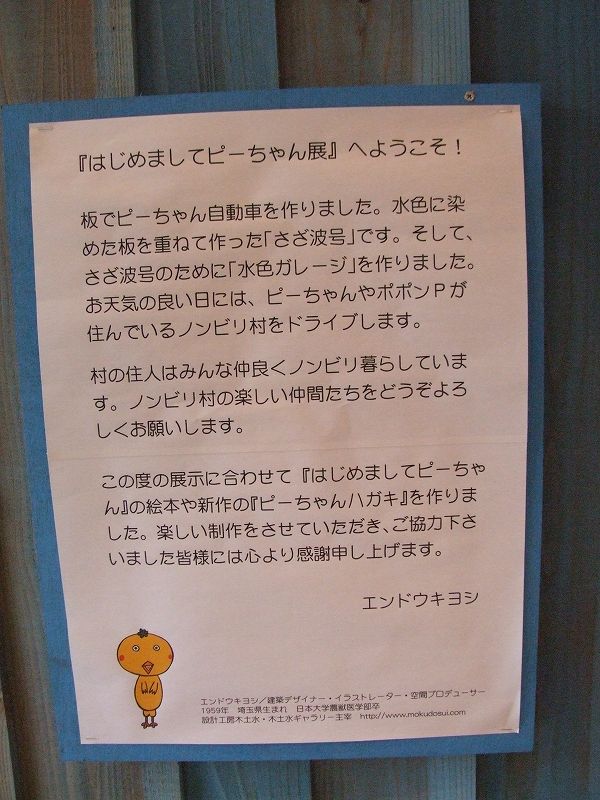 『はじめましてピーちゃん展』へようこそ！
板でピーちゃん自動車を作りました。水色に染
めた板を重ねて作った「さざ波号」です。そして、
さざ波号のために「水色ガレージ」を作りました。
お天気の良い日には、ピーちゃんやポポンPが
住んでいるノンビリ村をドライブします。
村の住人はみんな仲良くノンビリ暮らしていま
す。ノンビリ村の楽しい仲間たちをどうぞよろ
しくお願いします。
この度の展示に合わせて『はじめましてピーちゃ
ん』の絵本や新作の『ピーちゃんハガキ』を作りま
した。楽しい制作をさせていただき、ご協力下さ
いました皆様には心より感謝申し上げます。
エンドウキヨシ
エンドウキヨシ／建築デザイナー・イラストレーター・空間プロデューサー
1959年　埼玉県生まれ　日本大学農獣医学部卒
設計工房木土水・木土水ギャラリー主宰　http://www.mokudosui.com